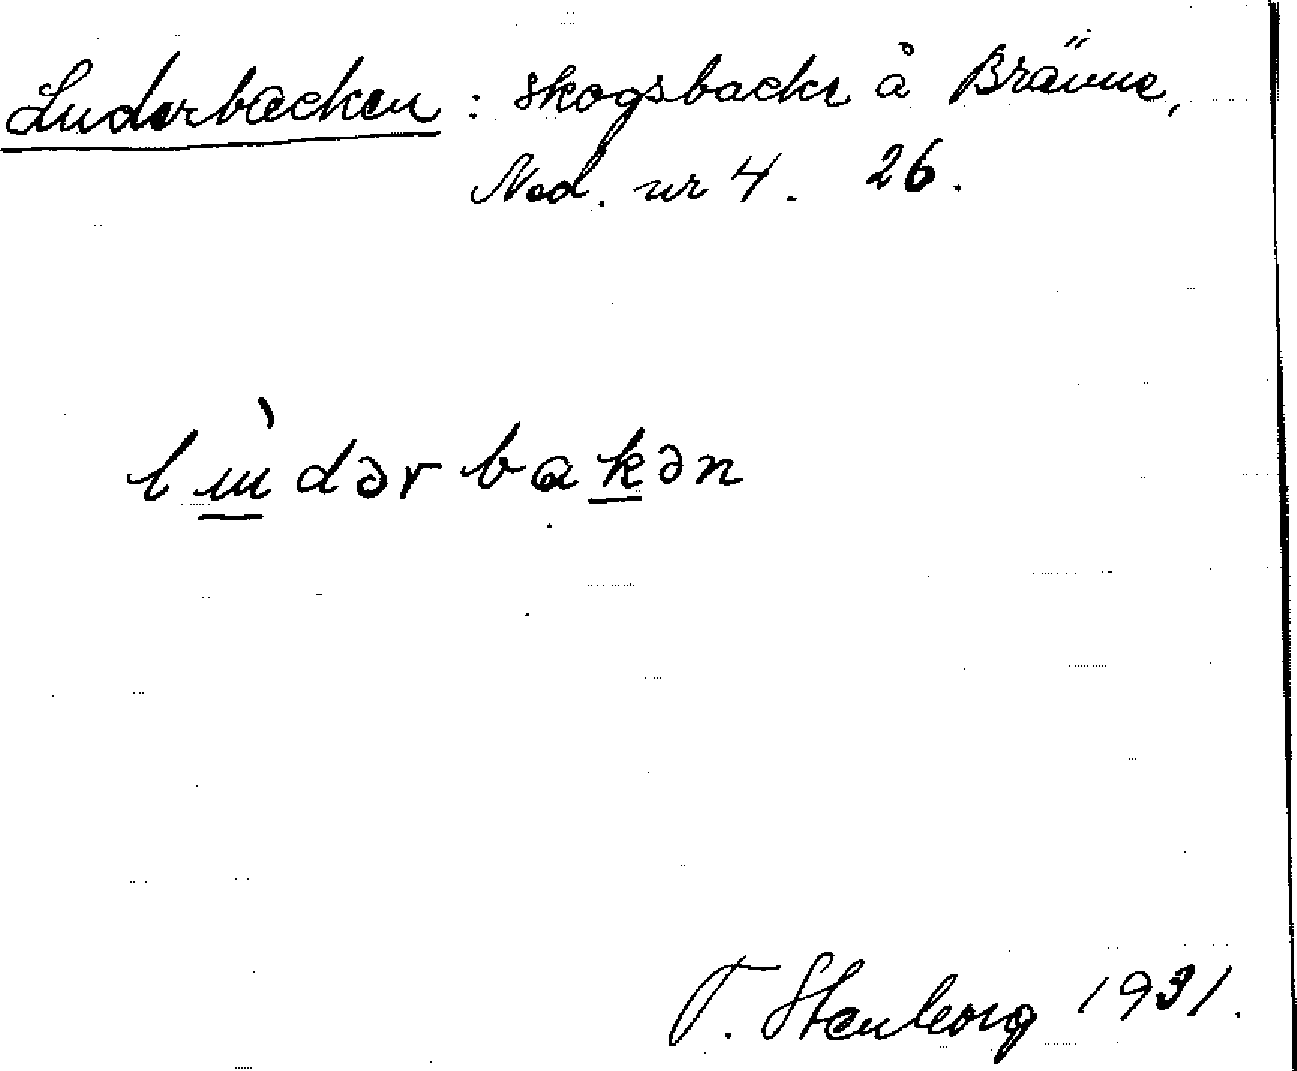 Luderbacken : skogsbacke å Bränne,
Ned. nr 4. 26.
lɯ̀dərbakən
T. Stenborg 1931.